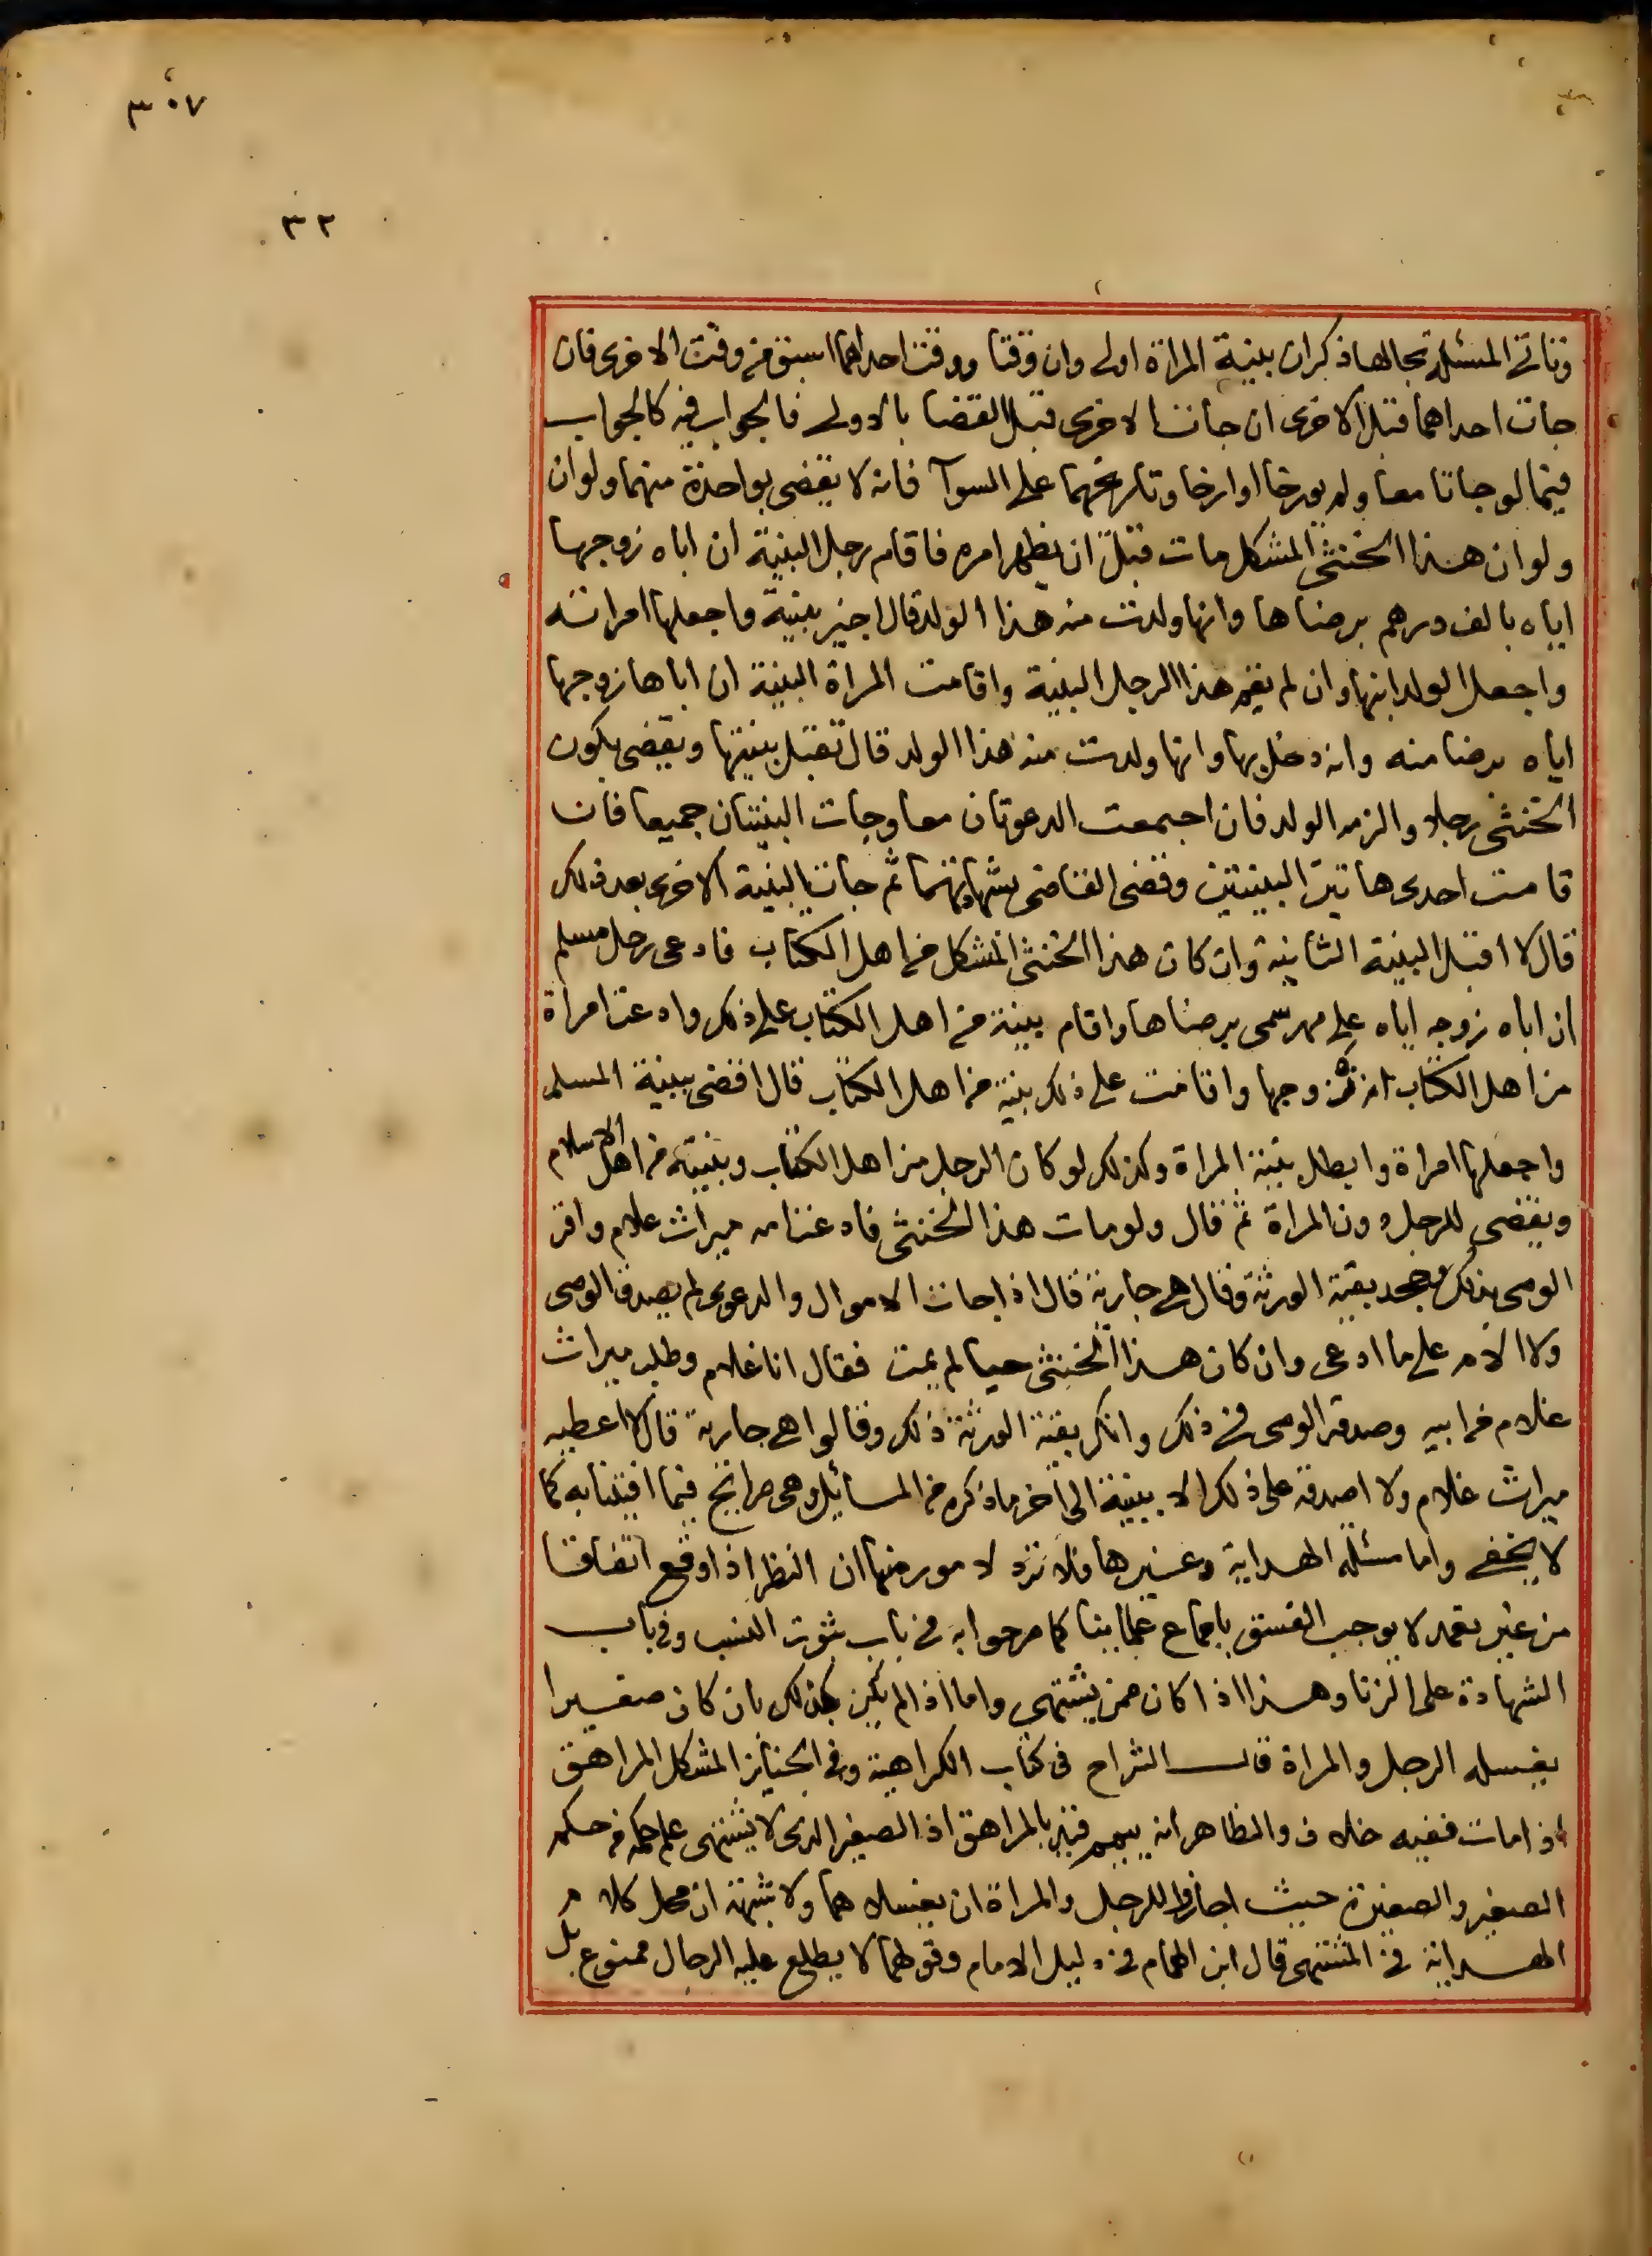 ٣٠٧
٣٢
وباقى المسئلة بحالها ذكر ان بينة المراة اولى وان وقتا ووقت احداهما اسبق من وقت الاخرى فان
جات احداهما قبل الاخرى ان جات الاخرى قبل القضا بالاولى فالجواب فيه كالجواب
فيما لو جاتا معا ولم يورخا او ارخا وتاريخهما على السوآ فانه لا يقضى بواحدة منهما ولو ان
ولو ان هذا الخنثى المشكل مات قبل ان يظهر امره فاقام رجل البينة ان اباه زوجها
اياه بالف درهم برضاها وانها ولدت منه هذا الولد قال اجيز بينته واجعلها امراته
واجعل الولد ابنها وان لم يقم هذا الرجل البينة واقامت المراة البينة ان اباها زوجها
اياه برضا منه وانه دخل بها وانها ولدت منه هذا الولد قال تقبل بينتها ويقضى بكون
الخنثى رجلا والزمه الولد فان اجتمعت الدعوتان معا وجات البينتان جميعا فان
قامت احدى هاتين البينتين وقضى القاضى بشهادتهما ثم جات البينة الاخرى بعد ذلك
قال لا اقبل البينة الثانية وان كان هذا الخنثى المشكل من اهل الكتاب فادعى رجل مسلم
ان اباه زوجه اياه على مهر سمى برضاها واقام بينة من اهل الكتاب على ذلك وادعت امراة
من اهل الكتاب انه تزوجها واقامت على ذلك بينة من اهل الكتاب قال اقضى ببينة المسلم
واجعلها امراة وابطل بينة المراة وكذلك لو كان الرجل من اهل الكتاب وبينته من اهل الاسلام
ويقضى للرجل دون المراة ثم قال ولو مات هذا الخنثى فادعت امه ميراث غلام واقر
الوصى بذلك وجحد بقية الورثة وقال هى جارية قال اذا جات الاموال والدعوى لم يصدق الوصى
ولا الام على ما ادعى وان كان هذا الخنثى حيا لم يمت فقال انا غلام وطلب ميراث
غلام من ابيه وصدقه الوصى فى ذلك وانكر بقية الورثة ذلك وقالوا هى جارية قال لا اعطيه
ميراث غلام ولا اصدقه على ذلك الا ببينة الى اخر ما ذكره من المسائل وهى صرائح فيما افتينا به كما
لا يخفى واما مسئلة الهداية وغيرها فلا ترد لامور منها ان النظر اذا وقع اتفاقا
من غير تعمد لا يوجب الفسق باجماع علمائنا كما صرحوا به فى باب ثبوت النسب وفى باب
الشهادة على الزنا وهذا اذا كان ممن يشتهى واما اذا لم يكن كذلك بان كان صغيرا
يغسله الرجل والمراة قال الشراح فى كتاب الكراهية وفى الجنائز المشكل المراهق
اذا مات ففيه خلاف والظاهر انه ييمم قيد بالمراهق اذ الصغير الذى لا يشتهى علم حكمه من حكم
الصغير والصغيرة حيث اجازوا للرجل والمراة ان يغسلاهما ولا شبهة ان محل كلام
الهداية فى المشتهى قال ابن الهمام فى دليل الامام وقولهما لا يطلع عليه الرجال ممنوع بل